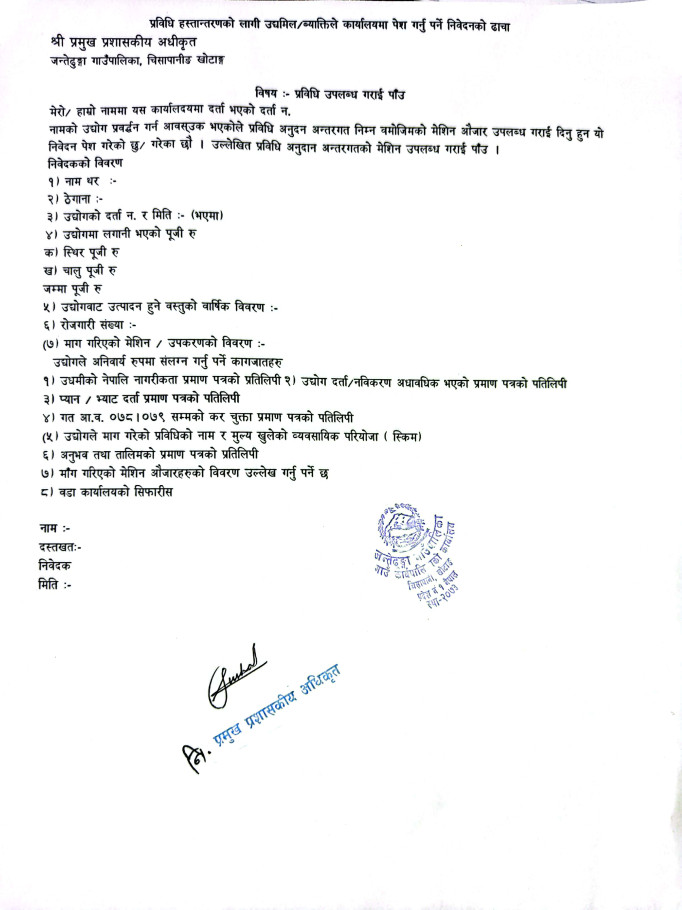 प्रविधि हस्तान्तरणको लागी उद्यमिल/ब्याक्तिले कार्यालयमा पेश गर्नु पर्ने निवेदनको ढाचा
श्री प्रमुख प्रशासकीय अधीकृत
जन्तेढुङ्गा गाउँपालिका, चिसापानीङ खोटाङ्ग
विषय :- प्रविधि उपलब्ध गराई पाँउ
मेरो/ हाम्रो नाममा यस कार्यालदयमा दर्ता भएको दर्ता न.
नामको उद्योग प्रवर्द्धन गर्न आवस्उक भएकोले प्रविधि अनुदन अन्तरगत निम्न वमोजिमको मेशिन औजार उपलब्ध गराई दिनु हुन यो
निवेदन पेश गरेको छु/ गरेका छौ । उल्लेखित प्रविधि अनुदान अन्तरगतको मेशिन उपलब्ध गराई पाँउ ।
निवेदकको विवरण
१) नाम थर :-
२) ठेगाना :-
३) उद्योगको दर्ता न. र मिति :- (भएमा)
४) उद्योगमा लगानी भएको पूजी रु
क) स्थिर पूजी रु
ख) चालु पूजी रु
जम्मा पूजी रु
५) उद्योगवाट उत्पादन हुने वस्तुको वार्षिक विवरण :-
६) रोजगारी संख्या :-
(७) माग गरिएको मेशिन / उपकरणको विवरण :-
उद्योगले अनिवार्य रुपमा संलग्न गर्नु पर्ने कागजातहरु
१) उधमीको नेपालि नागरीकता प्रमाण पत्रको प्रतिलिपी २) उद्योग दर्ता/नविकरण अधावधिक भएको प्रमाण पत्रको पतिलिपी
३) प्यान / भ्याट दर्ता प्रमाण पत्रको पतिलिपी
४) गत आ.व. ०७८।०७९ सम्मको कर चुक्ता प्रमाण पत्रको पतिलिपी
(५) उद्योगले माग गरेको प्रविधिको नाम र मुल्य खुलेको व्यवसायिक परियोजा ( स्किम)
६) अनुभव तथा तालिमको प्रमाण पत्रको प्रतिलिपी
७) माँग गरिएको मेशिन औजारहरुको विवरण उल्लेख गर्नु पर्ने छ
८) वडा कार्यालयको सिफारीस
नाम :-
दस्तखतः-
निवेदक
मिति :-
जन्तेढुङ्गा गाउँपालिका
गाउँ कार्यपालिकाको कार्यालय
चिसापानी, खोटाङ
प्रदेश नं १ नेपाल
स्था-२०७३
नि. प्रमुख प्रशासकीय अधिकृत